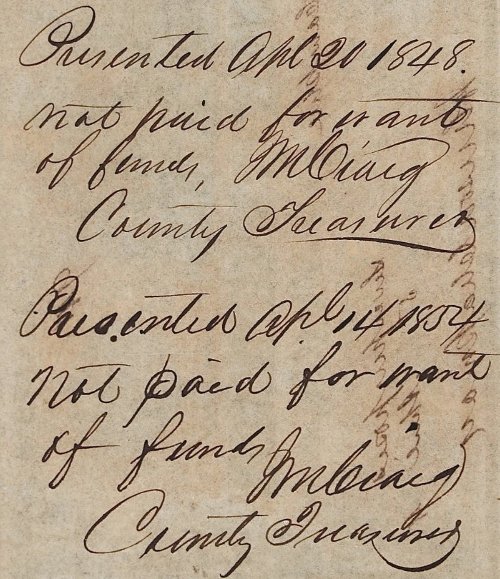 Presented Apl 20 1848.
not paid for want
of funds, JM Craig
County Treasurer
Presented Apl 14 1854
Not paid for want
of funds
JM Craig
County Treasurer